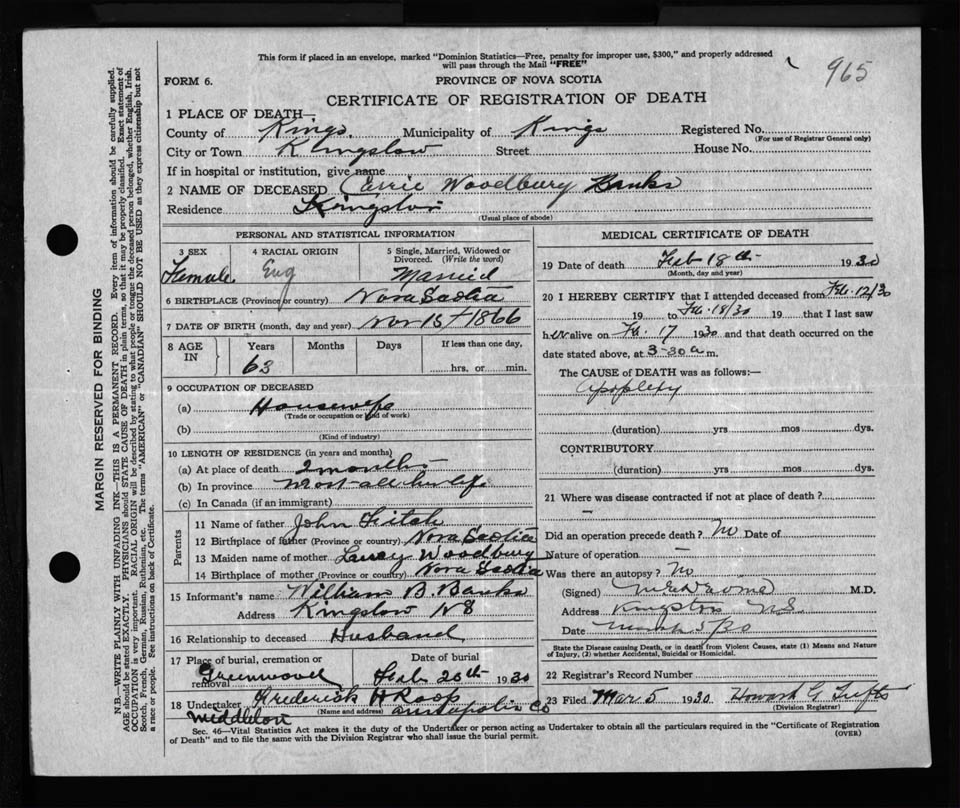 This form if placed in an envelope, marked "Dominion Statistics—Free, penalty for improper use, $300," and properly addressed
will pass through the Mail "FREE"
965
FORM 6.
PROVINCE OF NOVA SCOTIA
CERTIFICATE OF REGISTRATION OF DEATH
1 PLACE OF DEATH—
County of Kings Municipality of Kings Registered No.
(For use of Registrar General only)
City or Town Kingston Street House No.
If in hospital or institution, give name
2 NAME OF DECEASED Carrie Woodbury Banks
Residence Kingston
(Usual place of abode)
PERSONAL AND STATISTICAL INFORMATION
3 SEX 4 RACIAL ORIGIN 5 Single, Married, Widowed or Divorced. (Write the word)
Female Eng Married
6 BIRTHPLACE (Province or country) Nova Scotia
7 DATE OF BIRTH (month, day and year) Nov 15th 1866
8 AGE IN Years Months Days If less than one day,
63 hrs. or min.
9 OCCUPATION OF DECEASED
(a) Housewife
(Trade or occupation or kind of work)
(b)
(Kind of industry)
10 LENGTH OF RESIDENCE (in years and months)
(a) At place of death 2 months
(b) In province Most all her life
(c) In Canada (if an immigrant)
Parents
11 Name of father John Fitch
12 Birthplace of father (Province or country) Nova Scotia
13 Maiden name of mother Woodbury
14 Birthplace of mother (Province or country) Nova Scotia
15 Informant's name William B. Banks
Address Kingston NS
16 Relationship to deceased Husband
17 Place of burial, cremation or removal Date of burial
Greenwood Feb 20th 1930
18 Undertaker Frederick H Roop
(Name and address)
Middleton Annapolis Co
MEDICAL CERTIFICATE OF DEATH
19 Date of death Feb 18th 1930
(Month, day and year)
20 I HEREBY CERTIFY that I attended deceased from Feb. 12/30
19 to Feb. 18/30 19 that I last saw
her alive on Feb. 17 1930 and that death occurred on
date stated above, at 3-30 a m.
The CAUSE of DEATH was as follows:—
apoplexy
(duration) yrs mos dys.
CONTRIBUTORY
(duration) yrs mos dys.
21 Where was disease contracted if not at place of death?
—
Did an operation precede death? No Date of
Nature of operation —
Was there an autopsy? No
(Signed) M.D.
Address Kingston N.S.
Date March 5/30
State the Disease causing Death, or in death from Violent Causes, state (1) Means and
Nature of Injury, (2) whether Accidental, Suicidal or Homicidal.
22 Registrar's Record Number
23 Filed Mar 5 1930 Howard G Tufts
(Division Registrar)
Sec. 46—Vital Statistics Act makes it the duty of the Undertaker or person acting as Undertaker to obtain all the particulars required in the "Certificate of Registration
of Death" and to file the same with the Division Registrar who shall issue the burial permit.
(OVER)
MARGIN RESERVED FOR BINDING
N.B.—WRITE PLAINLY WITH UNFADING INK—THIS IS A PERMANENT RECORD. Every item of information should be carefully supplied.
AGE should be stated EXACTLY. PHYSICIANS should STATE CAUSE OF DEATH in plain terms, so that it may be properly classified. Exact statement of
OCCUPATION is very important. RACIAL ORIGIN will be described by stating to what people or tongue the deceased person belonged, whether English, Irish,
Scotch, French, German, Russian, Ruthenian, etc. The terms "AMERICAN" or "CANADIAN" SHOULD NOT BE USED as they express citizenship but not
a race or people. See instructions on back of Certificate.